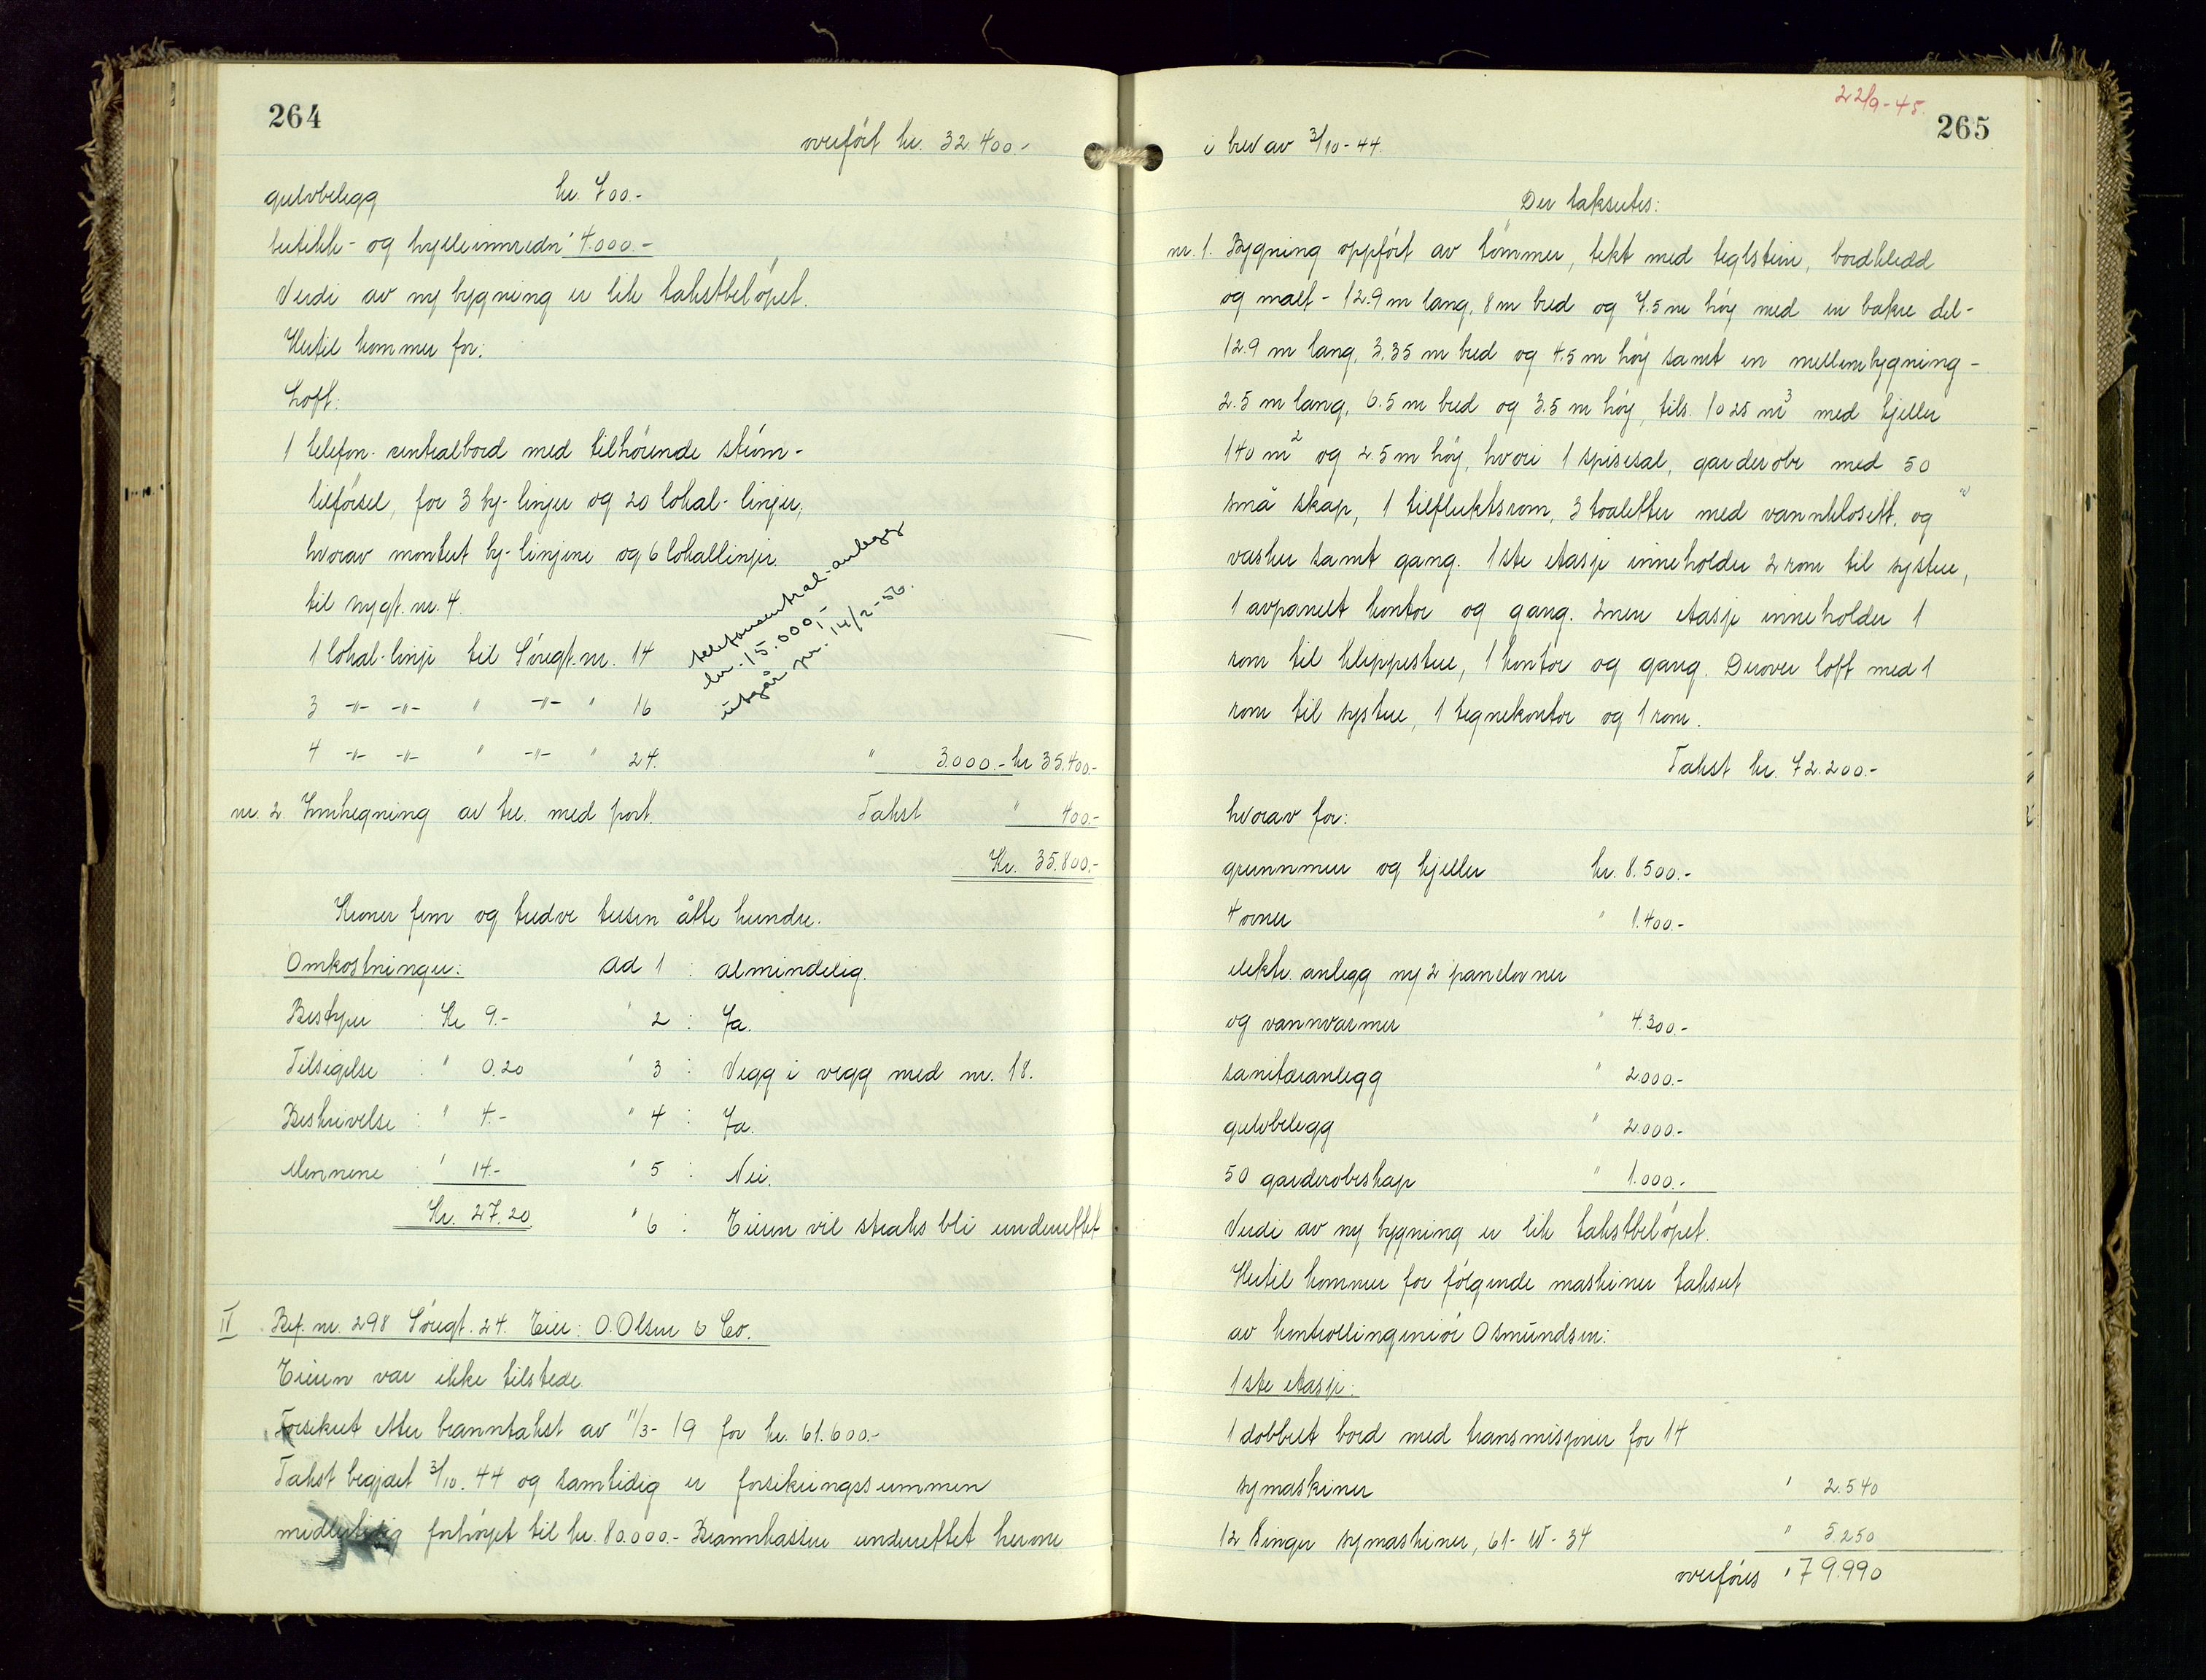 264
overført kr. 32.400.-
gulvbelegg kr. 700.-
butikk- og hylleinnredn " 4.000.-
Verdi av ny bygning er lik takstbeløpet.
Hertil kommer for:
Loft:
1 telefon-sentralbord med tilhørende strøm-
tilførsel, for 3 by-linjer og 20 lokal-linjer,
hvorav montert by-linjene og 6 lokallinjer
til Nygt. nr. 4.
1 lokal-linje til Søregt. nr. 14
3 -"- -"- " -"- " 16
4 -"- -"- " -"- " 24. " 3.000.- kr 35.400.-
telefonsentral-anlegg
kr. 15.000,-
utgår pr. 14/2-56.
nr. 2. Innhegning av tre med port. Takst " 400.-
Kr. 35.800.-
Kroner fem og tredve tusen åtte hundre.
Omkostninger: ad 1 : almindelig.
Bestyrer : Kr 9.- " 2 : Ja.
Tilsigelse : " 0.20 " 3 : Vegg i vegg med nr. 18.
Beskrivelse : " 4.- " 4 : Ja.
Mennene : " 14.- " 5 : Nei.
Kr. 27.20 " 6 : Eieren vil straks bli underrettet
IV Brf. nr. 298 Søregt. 24. Eier: O. Olsen & Co.
Eieren var ikke tilstede
Forsikret etter branntakst av 11/3-19 for kr. 61.600.-
Takst begjært 3/10.44 og samtidig er forsikringssummen
midlertidig forhøyet til kr. 80.000.- Brannkassen underrettet herom
22/9-45.
265
i brev av 3/10-44.
Der takseres:
nr. 1. Bygning oppført av tømmer, tekt med teglstein, bordkledd
og malt - 12.9 m lang, 8 m bred og 7.5 m høy med en bakre del -
12.9 m lang, 3.35 m bred og 4.5 m høy samt en mellembygning -
2.5 m lang, 6.5 m bred og 3.5 m høy, tils. 1025 m³ med kjeller
140 m² og 2.5 m høy, hvori 1 spisesal, garderobe med 50
små skap, 1 tilfluktsrom, 3 toaletter med vannklosett, og
vasker samt gang. 1ste etasje inneholder 2 rom til systue,
1 avpanelt kontor og gang. 2nen etasje inneholder 1
rom til klippestue, 1 kontor og gang. Derover loft med 1
rom til systue, 1 tegnekontor og 1 rom.
Takst kr. 72.200.-
hvorav for:
grunnmur og kjeller kr. 8.500.-
4 ovner " 1.400.-
elektr. anlegg ny 2 panelovner
og vannvarmer " 4.300.-
sanitæranlegg " 2.000.-
gulvbelegg " 2.000.-
50 garderobeskap " 1.000.-
Verdi av ny bygning er lik takstbeløpet.
Hertil kommer for følgende maskiner taksert
av kontrollingeniør Osmundsen:
1ste etasje:
1 dobbelt bord med transmisjoner for 14
symaskiner " 2.540
12 Singer symaskiner, 61-W-34 " 5.250
overføres " 79.990